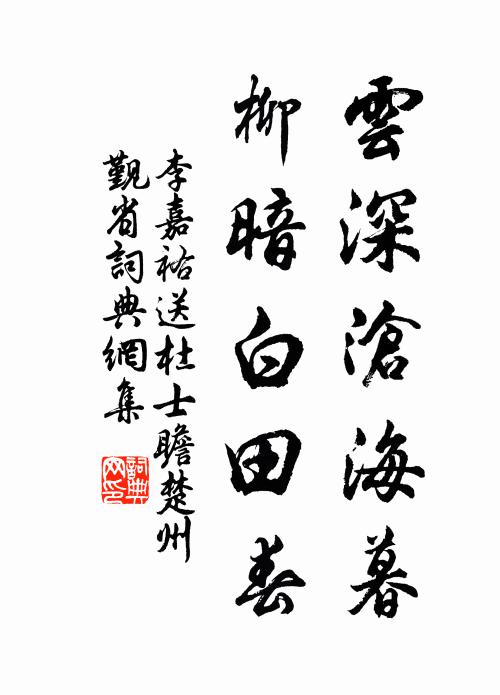 雲深滄海暮
柳暗白田春
李嘉祐送杜士瞻楚州
觐省詞典網集
詞典
网印